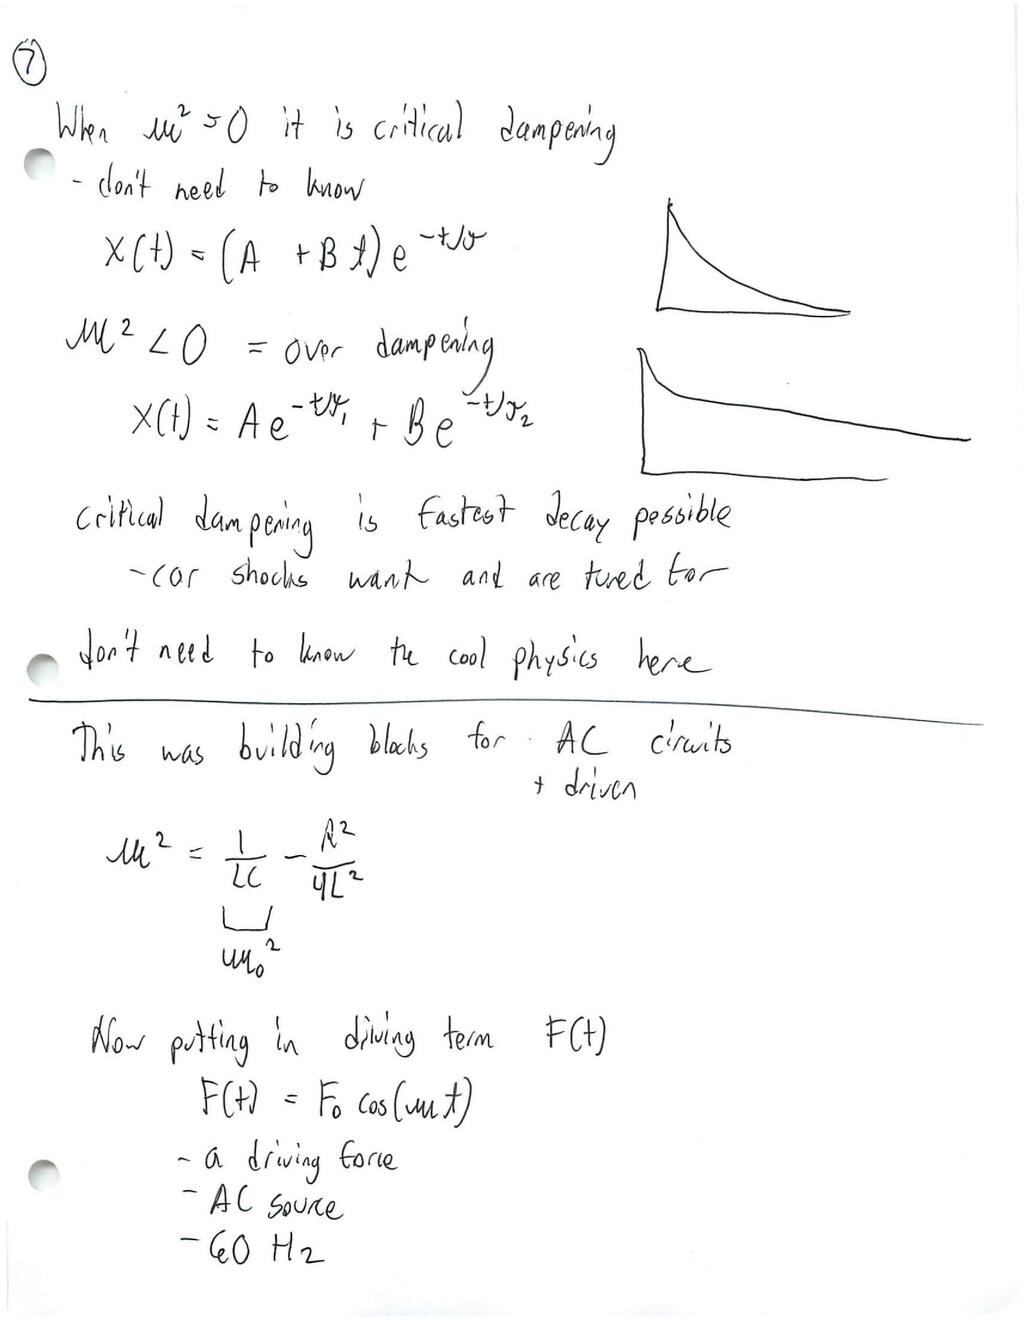 7
When ω² = 0 it is critical dampening
- don't need to know
X(t) = (A + Bt)e^-t/τ
ω² < 0 = over dampening
X(t) = Ae^-t/τ₁ + Be^-t/τ₂
critical dampening is fastest decay possible
- car shocks want and are tuned for
don't need to know the cool physics here
This was building blocks for AC circuits
+ driven
ω² = 1/LC - R²/4L²
ω₀²
Now putting in driving term F(t)
F(t) = F₀ cos(ωt)
- a driving force
- AC source
- 60 Hz